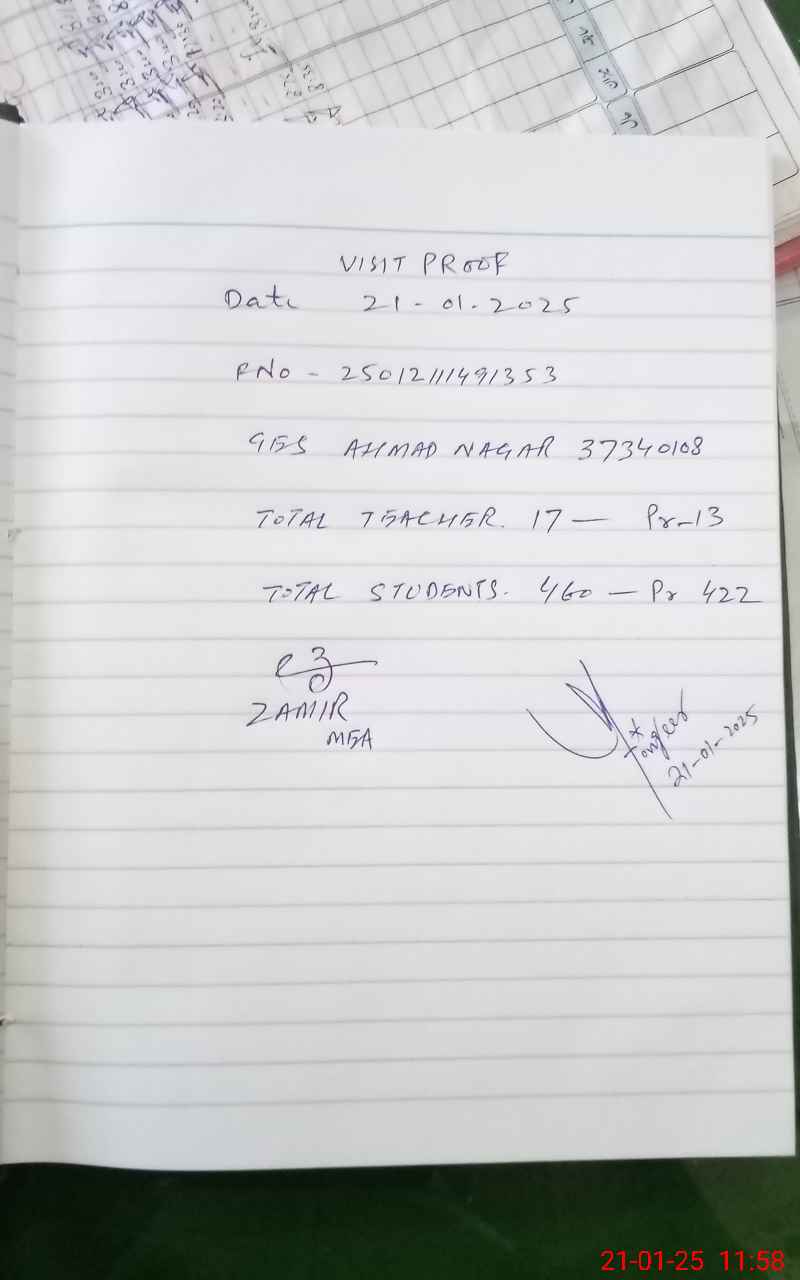 VISIT PROOF
Date 21-01-2025
FNo - 25012111491353
GES AHMAD NAGAR 37340108
TOTAL TEACHER. 17 — Pr-13
TOTAL STUDENTS. 460 — Pr 422
ZAMIR
MEA
21-01-2025
21-01-25 11:58